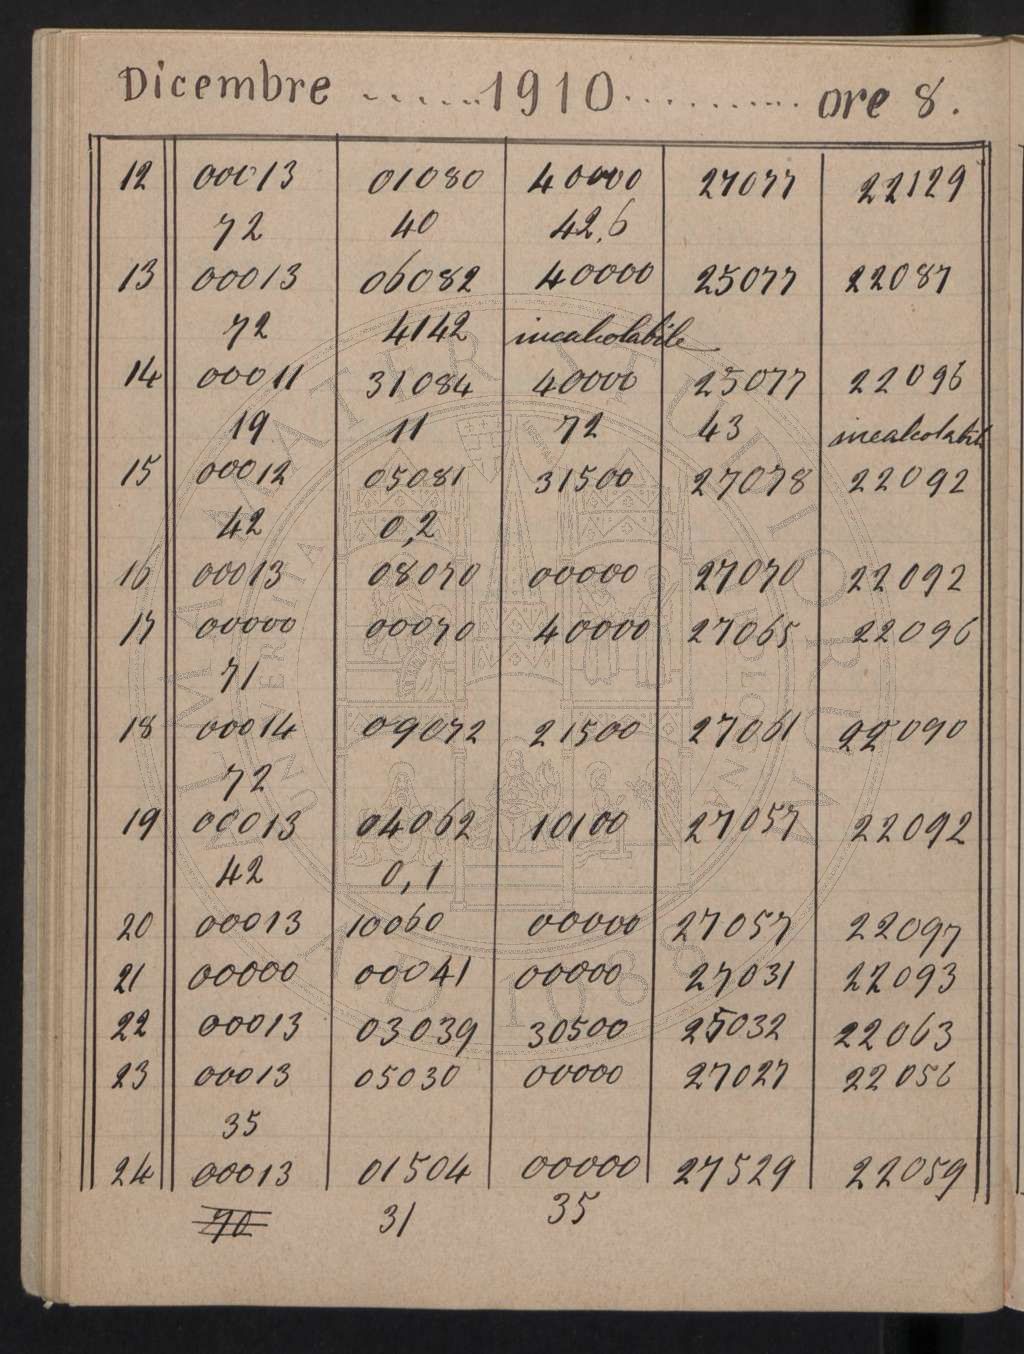 Dicembre ........ 1910 ........... ore 8.
12 00013 01080 40000 27077 22129
72 40 42,6
13 00013 06082 40000 25077 22087
72 4142 incalcolabile
14 00011 31084 40000 25077 22096
19 11 72 43 incalcolabil
15 00012 05081 31500 27078 22092
42 0,2
16 00013 08070 00000 27070 22092
17 00000 00070 40000 27065 22096
71
18 00014 09072 21500 27061 22090
72
19 00013 04062 10100 27057 22092
42 0,1
20 00013 10060 00000 27057 22097
21 00000 00041 00000 27031 22093
22 00013 03039 30500 25032 22063
23 00013 05030 00000 27027 22056
35
24 00013 01504 00000 27529 22059
70 31 35
ALMA MATER STUDIORUM
UNIVERSITÀ DI BOLOGNA
A.D. 1088